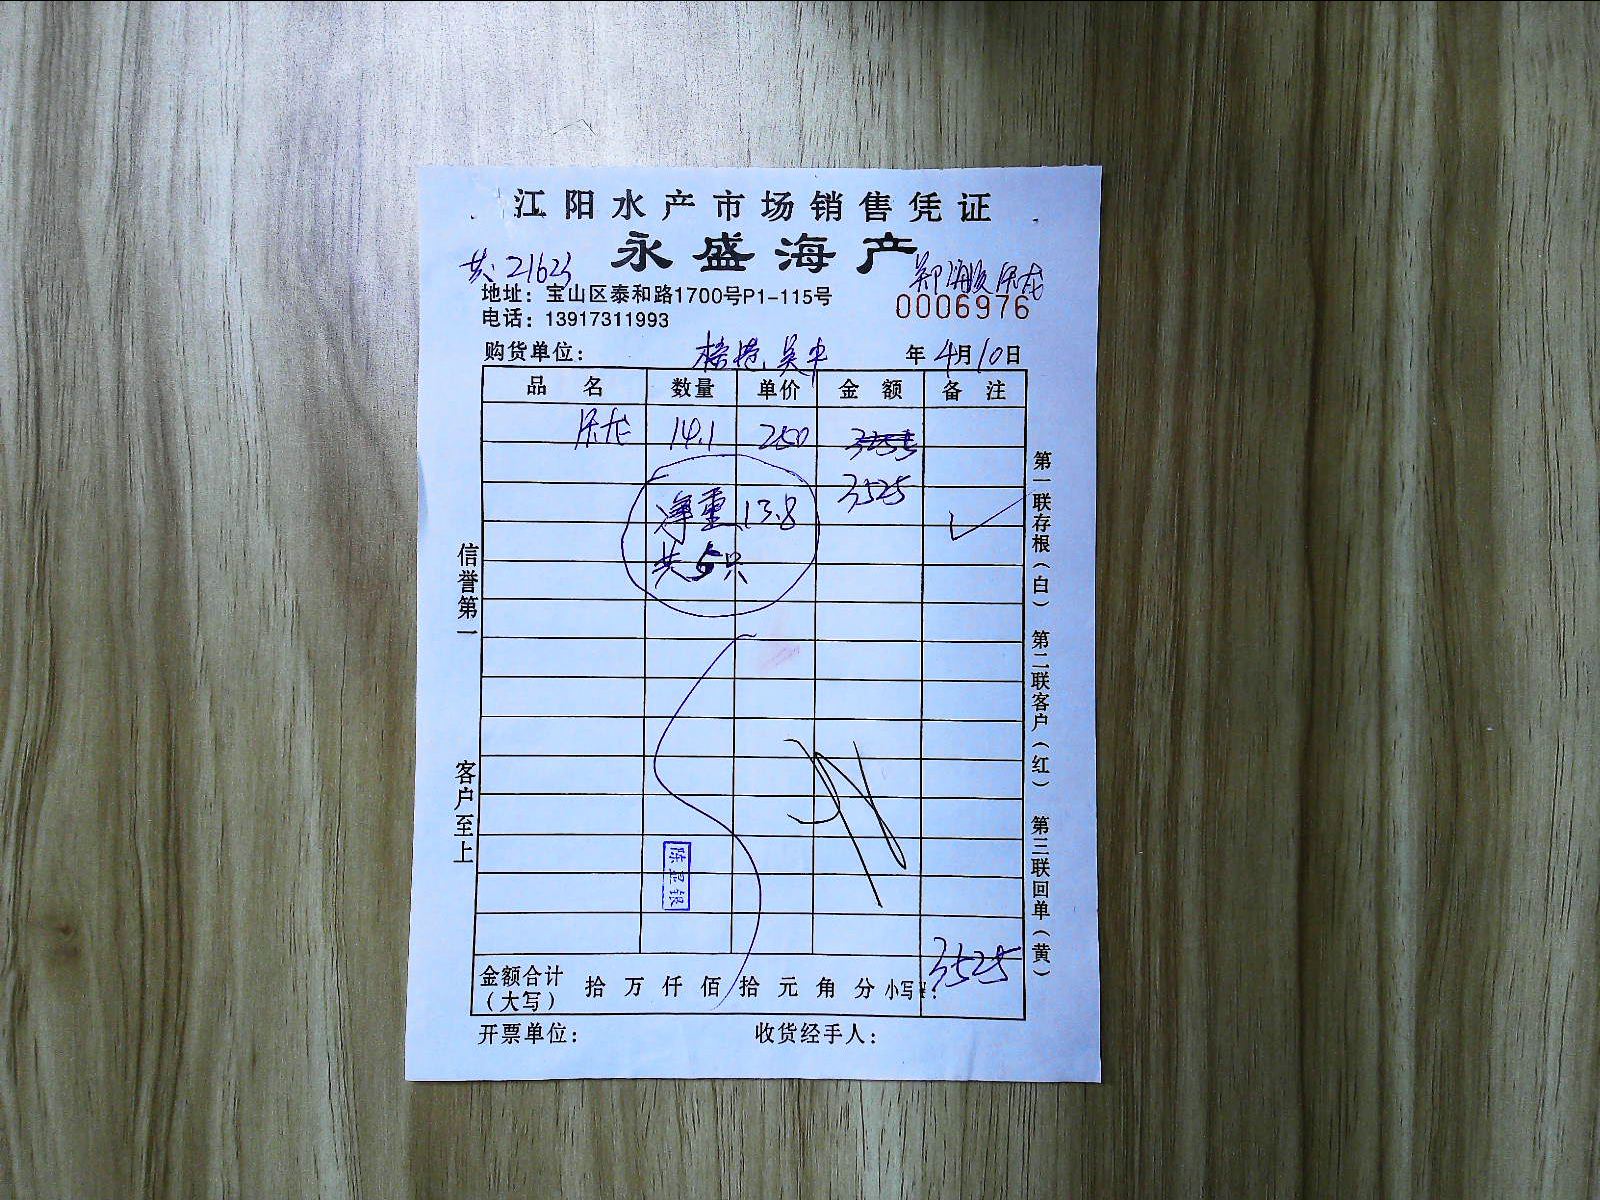 江阳水产市场销售凭证
永盛海产
共21623
地址：宝山区泰和路1700号P1-115号
0006976
电话：13917311993
购货单位：
年 4月10日
品 名 数量 单价 金 额 备 注
14.1 250 3255
3525
净重 13.8
共5只
信誉第一
客户至上
第一联存根（白） 第二联客户（红） 第三联回单（黄）
陈显银
金额合计（大写） 拾 万 仟 佰 拾 元 角 分 小写¥: 3525
开票单位： 收货经手人：